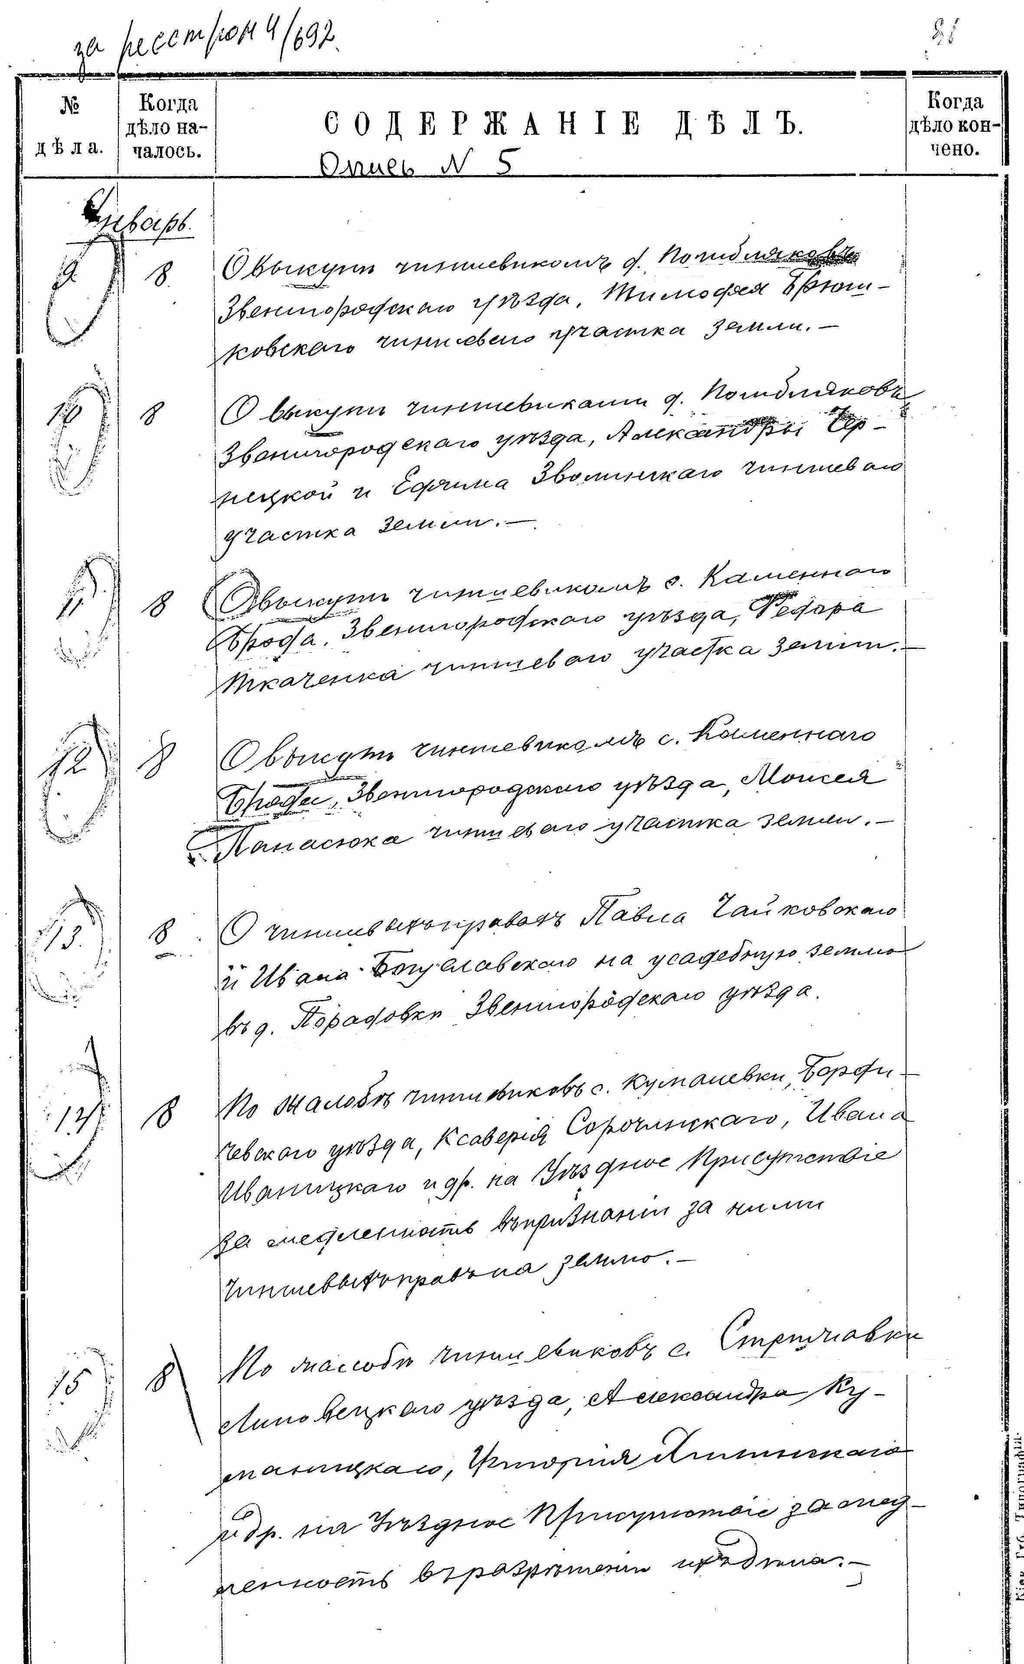 за реестром 4/692
№ дѣла.
Когда дѣло началось.
СОДЕРЖАНІЕ ДѢЛЪ.
Когда дѣло кончено.
Опись N 5
Январь.
9. 8. О выкупѣ чиншевикомъ д. Погибляковъ
Звенигородскаго уѣзда, Тимофея Брюш-
ковскаго чиншеваго участка земли.—
10 8 О выкупѣ чиншевиками д. Погибляковъ,
Звенигородскаго уѣзда, Александры Чер-
нецкой и Ефима Зволинскаго чиншеваго
участка земли.—
11 8 О выкупѣ чиншевикомъ с. Каменнаго
Брода, Звенигородскаго уѣзда, Федора
Ткаченка чиншеваго участка земли.—
12 8 О выкупѣ чиншевикомъ с. Каменнаго
Брода, Звенигородскаго уѣзда, Моисея
Панасюка чиншеваго участка земли.—
13. 8 О чиншевыхъ правахъ Павла Чайковскаго
и Ивана Богуславскаго на усадебную землю
въ д. Порадовки Звенигородскаго уѣзда.
14 8 По жалобѣ чиншевиковъ с. Кумановки, Берди-
чевскаго уѣзда, Ксаверія Сорочинскаго, Ивана
Иваницкаго и др. на Уѣздное Присутствіе
за медленность въ признаніи за ними
чиншевыхъ правъ на землю.—
15 8 По жалобѣ чиншевиковъ с. Стрижавки
Липовецкаго уѣзда, Александра Ку-
маницкаго,
и др. на Уѣздное Присутствіе за мед-
ленность въ разрѣшеніи ихъ дѣла.—
Кіев. Губ. Типографія.